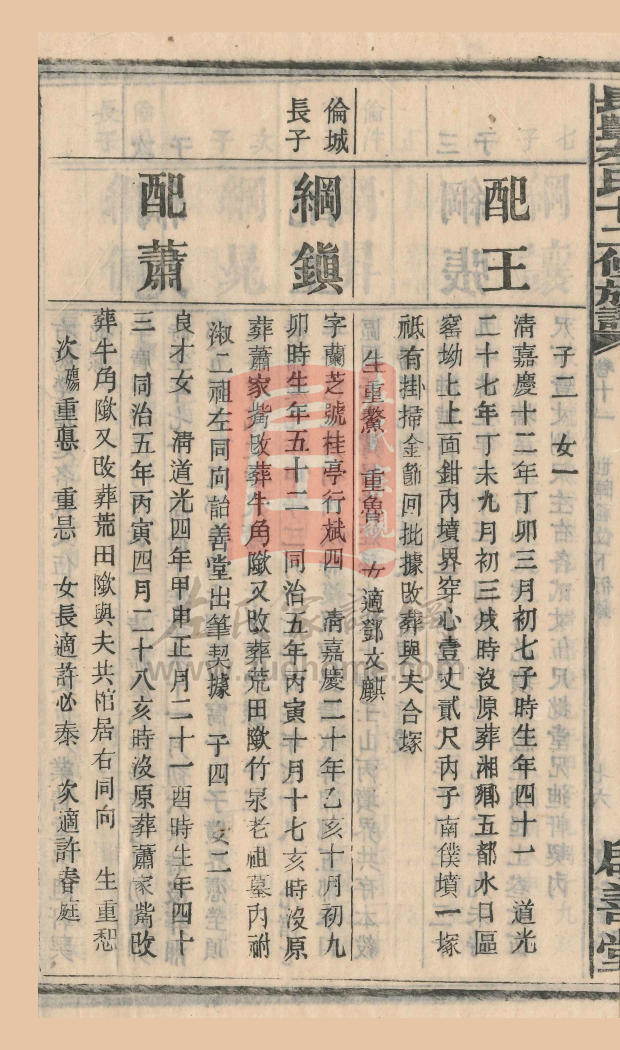 子三 女一
配王
清嘉慶十二年丁卯三月初七子時生年四十一 道光
二十七年丁未九月初三戌時沒原葬湘鄉五都水口區
窰坳上上面鉗內墳界穿心壹丈貳尺丙子南僕墳一塚
祗有掛掃金節回批據改葬與夫合塚
生重鰲 重魯 女適鄧文麒
倫城
長子
綱鎮
字蘭芝號桂亭行斌四 清嘉慶二十年乙亥十月初九
卯時生年五十二 同治五年丙寅十月十七亥時沒原
葬蕭家嘴改葬牛角塅又改葬荒田塅竹泉老祖墓內祔
淑二祖左同向詒善堂出筆契據 子四 女二
配蕭
良才女 清道光四年甲申正月二十一酉時生年四十
三 同治五年丙寅四月二十八亥時沒原葬蕭家嘴改
葬牛角塅又改葬荒田塅與夫共棺居右同向 生重恕
次殤重 重 女長適許必泰 次適許春庭
卷十一
善堂
www.zuojiahome.com